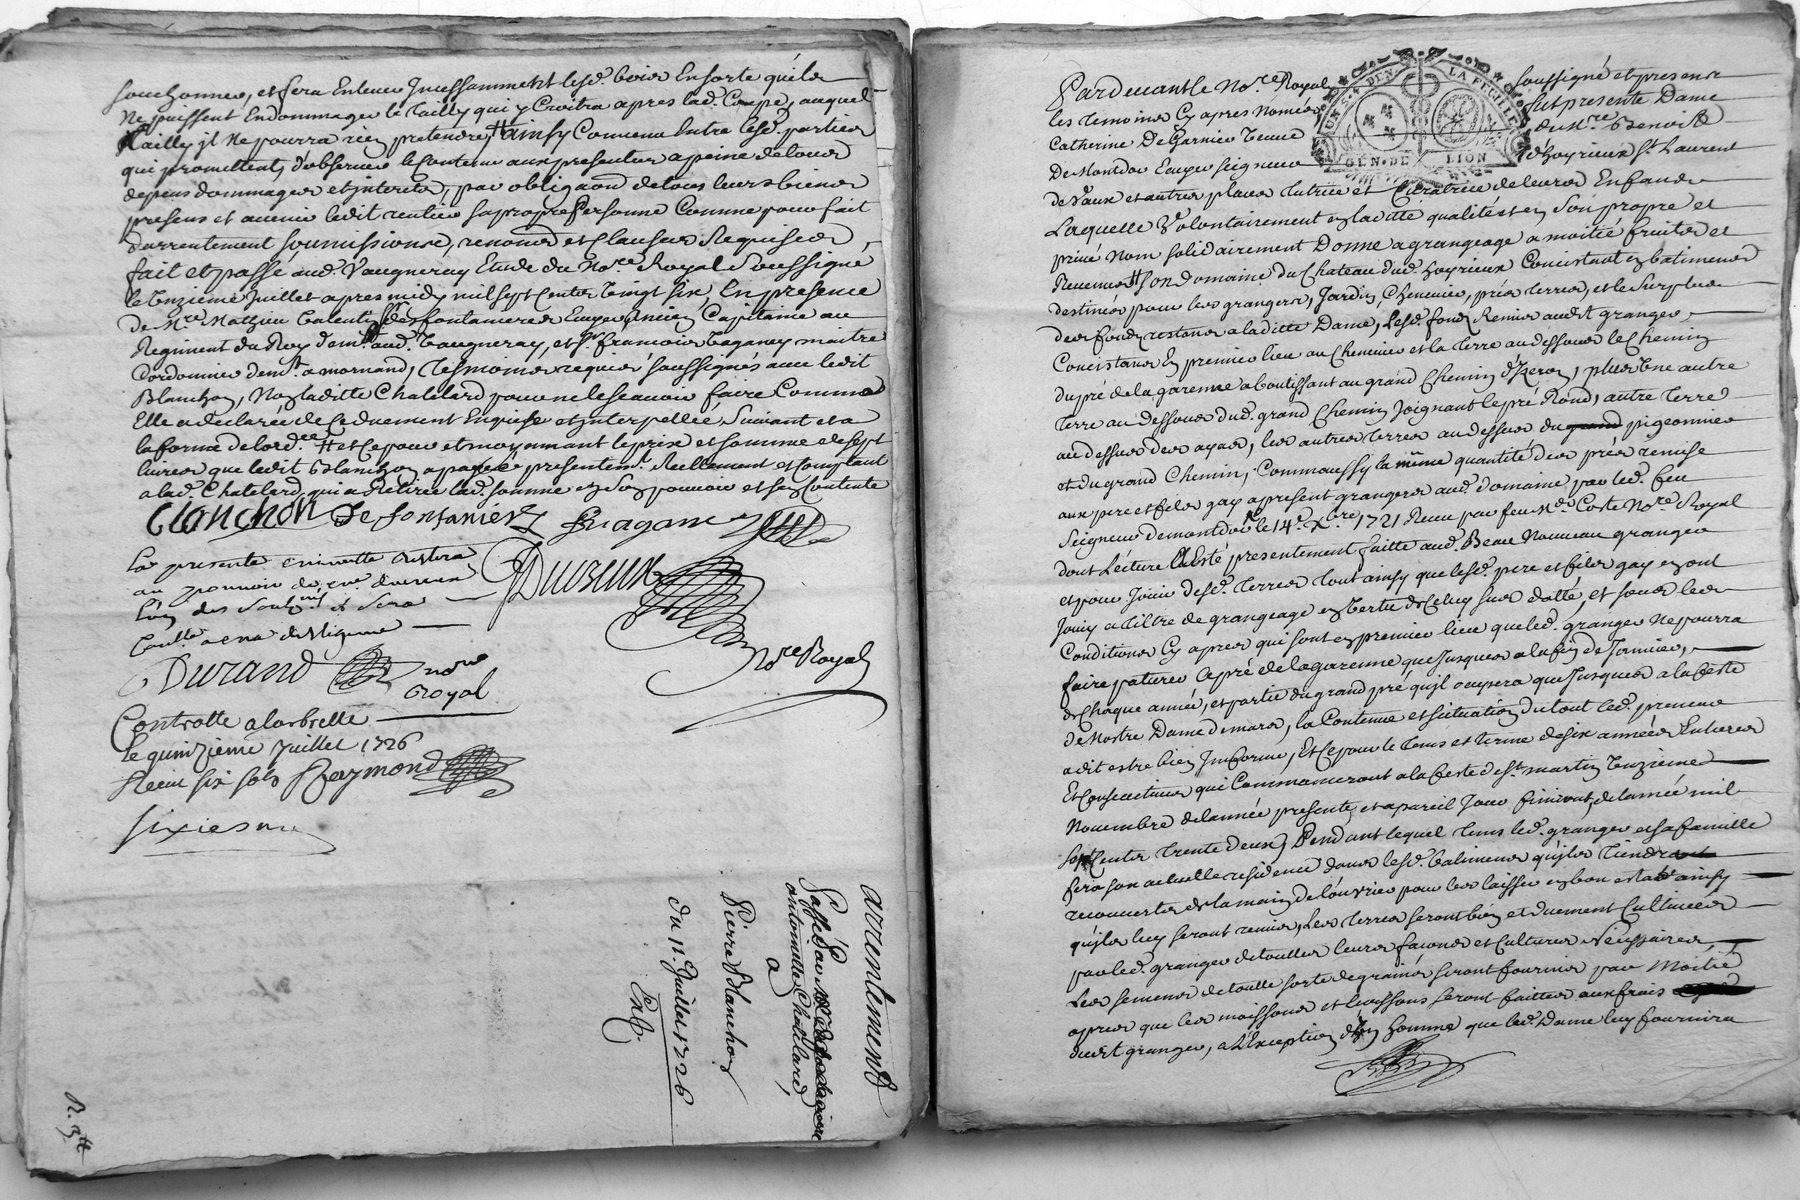 souchonnes, et sera Enlevé Incessamment lesd. bois Ensorte qu'ils
ne puissent Endommager le Tailly qui y Croitra apres lad. Coupe, auquel
Tailly il ne pourra rien pretendre, ainsy Convenu Entre lesd. parties
qui promettent d'observer le Contenu aux presentes a peine de tous
depens dommages et interets, par obligaon de tous leurs biens
presens et avenir ledit rentier sa propre Personne Comme pour fait
darrentement soumissions, renoncé et clauses Requises,
fait et passé aud. Vaugneray Etude du No.re Royal Soussigné
le Onzieme Juillet apres midy mil sept Cents vingt six, En presence
de M.re Mathieu Valentin desfontanieres Ecuyer, ancien Capitaine au
Regiment du Roy dem.t aud. Vaugneray, et S.r francois Raganey maitre
Cordonnier dem.t a mornand, Tesmoins requis soussignés avec ledit
Blanchon, Non laditte Chatelard pour ne le scavoir faire Comme
Elle a declaré de Ce duement Enquise et interpellée, Suivant et a
la forme de lord.ce # et Ce pour et moyennant le prix et somme de sept
livres que ledit Blanchon a payée presentem.t Reellement et Comptant
a lad. Chatelard, qui a Retirée lad. somme en son pouvoir et s'en Contente
blanchon Desfontanieres Ragane
La presente minutte restera
au pouvoir de
l'un des soubsig.és et sera
DUVZEUX
No.re Royal
DURAND no.re
Royal
Controlle a larbrelle
le quinzieme Juillet 1726
Receu six sols Raymond
arrentement
Passé par
antoinette Chattelard,
a
Pierre Blanchon
du 11. Juillet 1726
Exp.
R. 3tt
GEN. DE LION
Pardevant le No.re Royal soussigné et presence
les temoins Cy apres Només fut presente Dame
Catherine De Garnier veuve de M.re Benoist
De Montdor Ecuyer seigneur d'hoyrieux St Laurent
de Vaux et autres places tutrice et Curatrice de leurs Enfans
Laquelle Volontairement en laditte qualité et en Son propre et
privé Nom solidairement Donne a grangeage a moitié fruits et
Revenus # son domaine du Chateau dud. hoyrieux Consistant en batimens
destinés pour les grangers, Jardin, Chenevier, prés terres, et le Surplus
des fonds restans a laditte Dame, lesd. fonds Remis audit granger
Consistans En premier lieu au Chenevier et la terre au dessous le Chemin
du pré de la garenne aboutissant au grand Chemin d'Izeron, plus Une autre
terre au dessous dud. grand Chemin Joignant le pré Rond, autre terre
au dessus des ayats, les autres terres au dessus du grand pigeonnier
et du grand Chemin; Comme aussy la même quantité des prés remise
aux pere et fils gay a present grangers aud. domaine par led. feu
Seigneur de montdor le 14.e X.bre 1721 Receu par feu M.e Coste No.re Royal
dont Lecture a Esté presentement faitte aud. Beau Nouveau granger
et pour Jouir desd. terres tout ainsy que lesd. pere et fils gay en ont
Jouy a tiltre de grangeage en vertu de Celuy sus datté, et sous les
Conditions Cy apres qui sont en premier lieu que led. granger ne pourra
faire paturer le pré de la garenne que Jusques a la fin de Janvier,
de Chaque année, et partie du grand pré qu'il occupera que Jusques a la feste
de Nostre Dame de mars, la Contenue et situation du tout led. preneur
a dit estre bien Informé, Et Ce pour le tems et terme de six années Entieres
Et Consecutives qui Commanceront a la feste de St martin Onzieme
Novembre de l'année presente et a pareil Jour finiront, de l'année mil
sept Cents trente deux, Pendant lequel tems led. granger et sa famille
fera son actuelle residence dans lesd. batimens qu'ils tiendront
recouverts de la main de l'ouvrier pour les laisser en bon estat ainsy
qu'ils luy seront remis, Les terres seront bien et duement Cultivées
par led. granger de touttes leurs façons et cultures Necessaires,
Les semences de toutte sorte de grains seront fournies par Moitié
apres que les moissons et seront faittes aux frais
dudit granger, a l'exception d'un homme que lad. Dame luy fournira